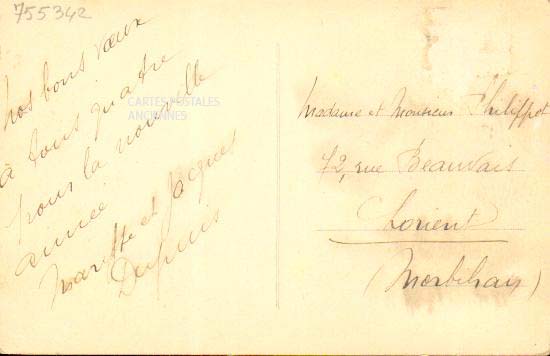 755342
Nos bons vœux
à tous quatre
pour la nouvelle
année
et Jacques
Dupuis
CARTES POSTALES
ANCIENNES
Madame et Monsieur Philippot
72, rue Beauvais
Lorient
(Morbihan)